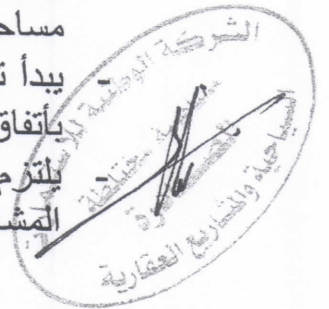 مساحـ
- يبدأ تـ
بأتفاق
- يلتزم
المشـ
الشركة الوطنية للإ
سياحية والمشاريع العقارية
مختلطة